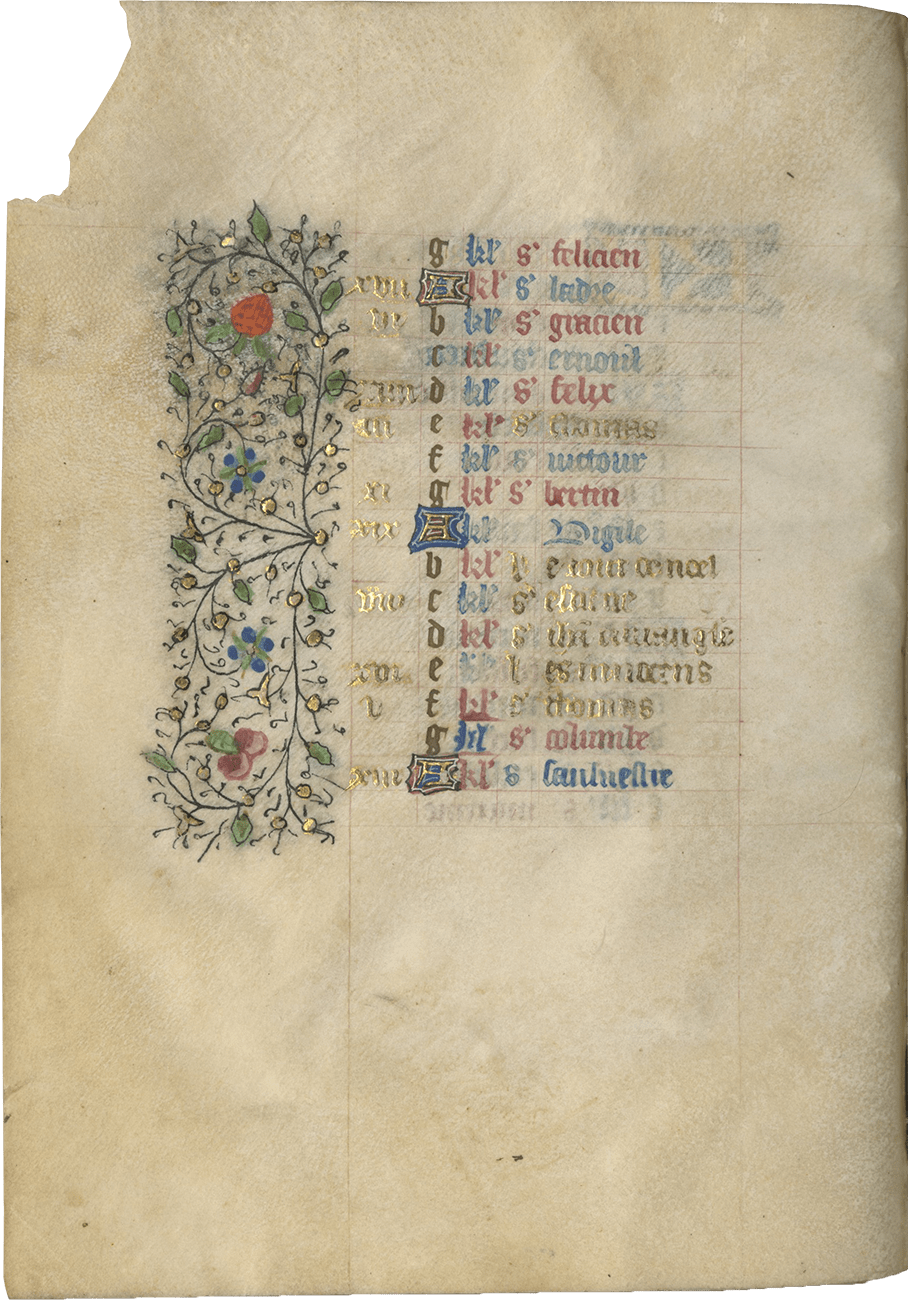 g kl' s' felicien
xviii A kl' s' ladre
vii b kl' s' gracien
c kl' s' ernoul
d kl' s' felix
iiii e kl' s' thomas
f kl' s' victour
xi g kl' s' bertin
xix A kl' Vigile
b kl' le iour de noel
viii c kl' s' estiene
d kl' s'
xvi e kl' les innocens
v f kl' s' thomas
g kl' s' columbe
xiii A kl' s' sauluestre